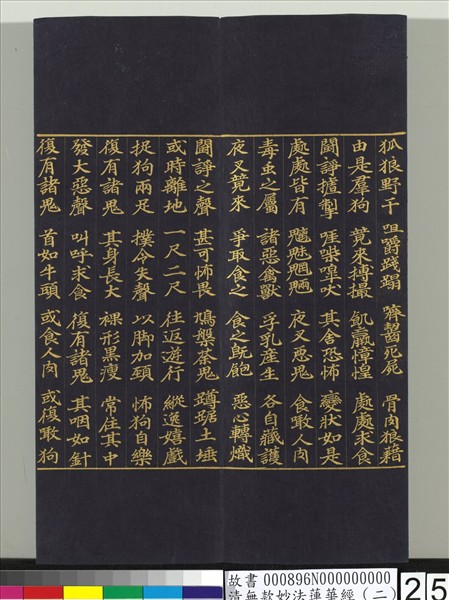 狐狼野干 咀嚼踐蹋 嚌齧死屍 骨肉狼藉
由是羣狗 競來搏撮 飢羸慞惶 處處求食
鬪諍摣掣 啀喍嘷吠 其舍恐怖 變狀如是
處處皆有 魑魅魍魎 夜叉惡鬼 食噉人肉
毒虫之屬 諸惡禽獸 孚乳產生 各自藏護
夜叉競來 爭取食之 食之既飽 惡心轉熾
鬪諍之聲 甚可怖畏 鳩槃荼鬼 蹲踞土埵
或時離地 一尺二尺 往返遊行 縱逸嬉戲
捉狗兩足 撲令失聲 以脚加頸 怖狗自樂
復有諸鬼 其身長大 裸形黑瘦 常住其中
發大惡聲 叫呼求食 復有諸鬼 其咽如針
復有諸鬼 首如牛頭 或食人肉 或復噉狗
故書 000896N000000000
清無款妙法蓮華經(二)
25